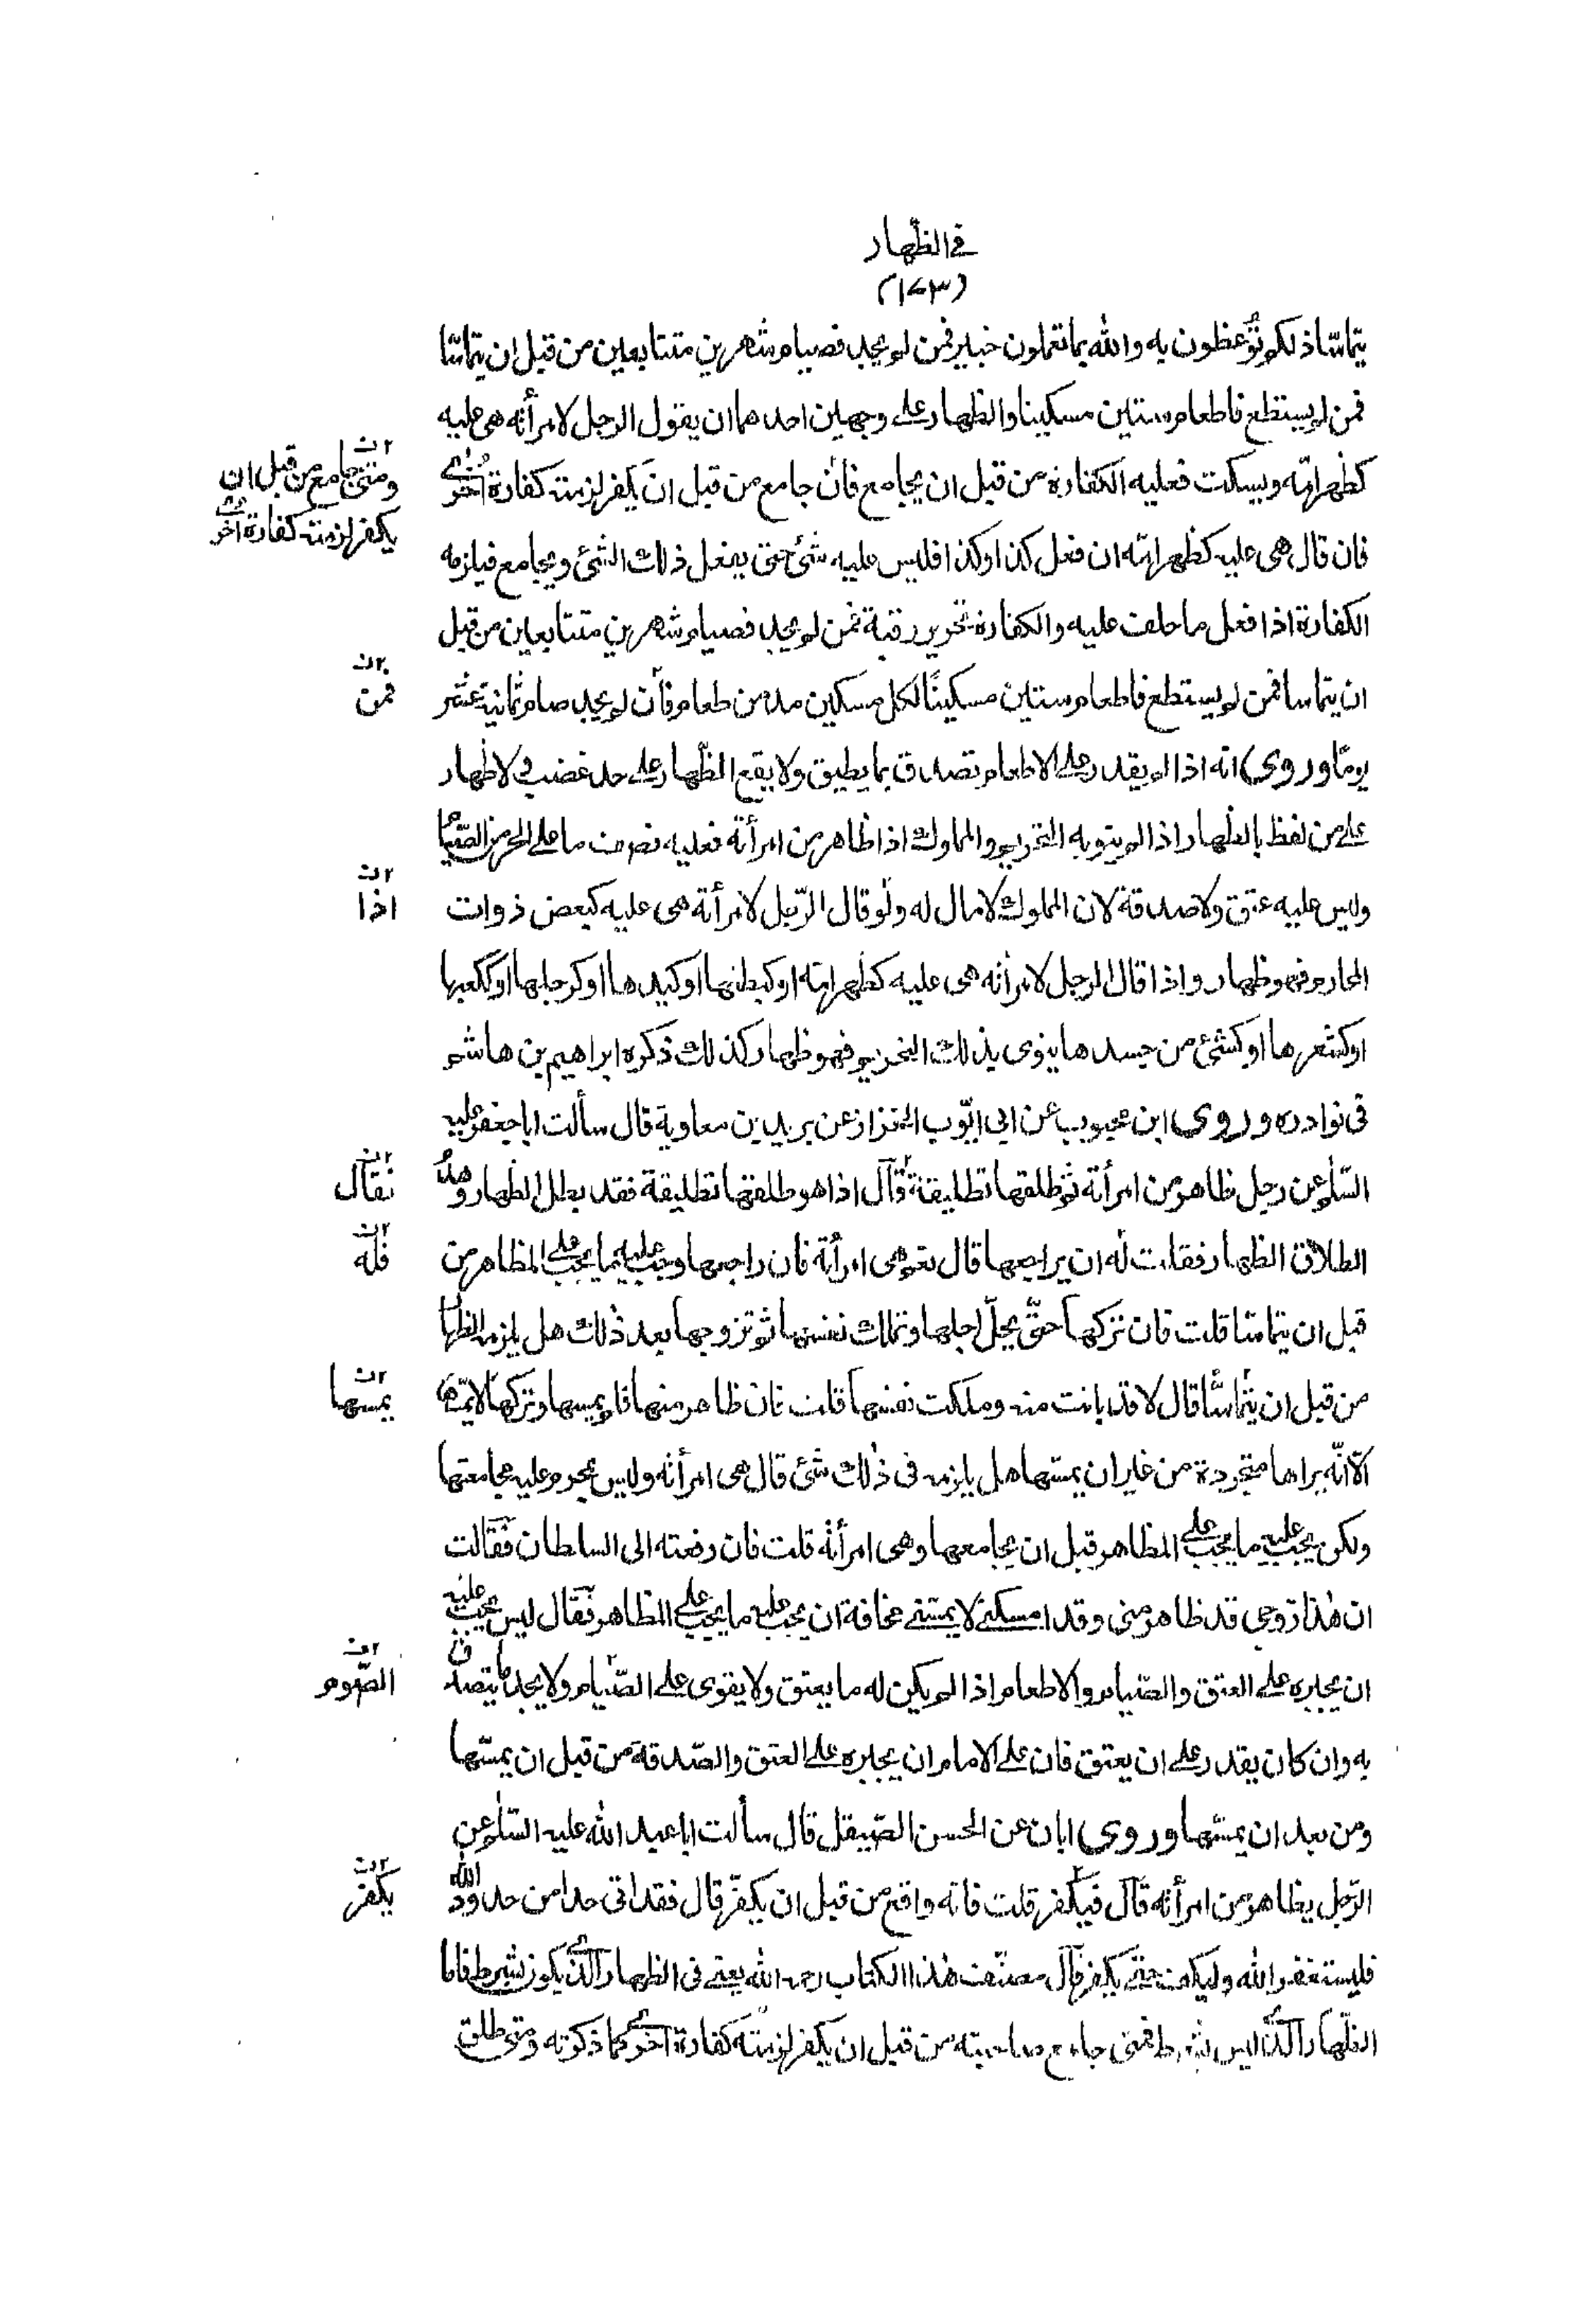 في الظهار
(١٧٣)
يتماسّا ذلكم توعظون به والله بما تعملون خبير فمن لم يجد فصيام شهرين متتابعين من قبل ان يتماسّا
فمن لم يستطع فاطعام ستين مسكينا والظهار على وجهين احدهما ان يقول الرجل لامرأته هى عليه
كظهر امّه ويسكت فعليه الكفارة من قبل ان يجامع فان جامع من قبل ان يكفر لزمته كفارة اخرى
٢ ن
ومتى جامع من قبل ان
يكفر لزمته كفارة اخرى
فان قال هى عليه كظهر امّه ان فعل كذا وكذا فليس عليه شئ حتى يفعل ذلك الشئ ويجامع فيلزمه
الكفارة اذا فعل ما حلف عليه والكفارة تحرير رقبة فمن لم يجد فصيام شهرين متتابعين من قبل
ان يتماسا فمن لم يستطع فاطعام ستين مسكينًا لكل مسكين مد من طعام فان لم يجد صام ثمانية عشر
٢ ن
فمن
يومًا وروى) انه اذا لم يقدر على الاطعام تصدق بما يطيق ولا يقع الظهار على حد غضب ولا ظهار
على من لفظ بالظهار اذا لم ينو به التحريم والمملوك اذا ظاهر من امرأته فعليه نصف ما على الحر من الصّيام
وليس عليه عتق ولا صدقة لان المملوك لا مال له ولو قال الرّجل لامرأته هى عليه كبعض ذوات
٢ ن
اذا
المحارم فهو ظهار واذا قال الرجل لامرأته هى عليه كظهر امّه او كبطنها او كيدها او كرجلها او ككعبها
او كشعرها او كشئ من جسدها ينوى بذلك التحريم فهو ظهار كذلك ذكره ابراهيم بن هاشم
فى نوادره وروى) ابن محبوب عن ابى ايّوب الخزاز عن بريد بن معاوية قال سألت ابا جعفر عليه
السّلم عن رجل ظاهر من امرأته ثم طلقها تطليقة قال اذا هو طلقها تطليقة فقد بطل الظهار وهدم
٢ ن
فقال
الطلاق الظهار فقلت له ان يراجعها قال نعم هى امرأته فان راجعها وجب عليه ما يجب على المظاهر من
٢ ن
فله
قبل ان يتماسّا قلت فان تركها حتّى يحلّ اجلها وتملك نفسها ثم تزوجها بعد ذلك هل يلزمه الظهار
من قبل ان يتماسّا قال لا قد بانت منه وملكت نفسها قلت فان ظاهر منها فلم يمسها وتركها لا يمسّها
٢ ن
يمسها
الّا انّه يراها متجردة من غير ان يمسّها هل يلزمه فى ذلك شئ قال هى امرأته وليس يحرم عليه مجامعتها
ولكن يجب عليه ما يجب على المظاهر قبل ان يجامعها وهى امرأته قلت فان رفعته الى السلطان فقالت
ان هذا زوجى قد ظاهر منى وقد امسكنى لا يمسّنى مخافة ان يجب عليه ما يجب على المظاهر فقال ليس يجب عليه
ان يجبره على العتق والصّيام والاطعام اذا لم يكن له ما يعتق ولا يقوى على الصّيام ولا يجد ما يتصدق
٢ ن
الصّوم
به وان كان يقدر على ان يعتق فان على الامام ان يجبره على العتق والصّدقة من قبل ان يمسّها
ومن بعد ان يمسّها وروى) ابان عن الحسن الصّيقل قال سألت ابا عبد الله عليه السّلم عن
الرّجل يظاهر من امرأته قال فيكفر قلت فانه واقع من قبل ان يكفّر قال فقد اتى حدا من حدود الله
٢ ن
يكفر
فليستغفر الله وليكف حتى يكفر قال مصنّف هذا الكتاب رحمه الله يعنى فى الظهار الّذى يكون بشرط فاما
الظّهار الّذى ليس بشرط فمتى جامع صاحبته من قبل ان يكفر لزمته كفارة اخرى كما ذكرته ومتى طلق